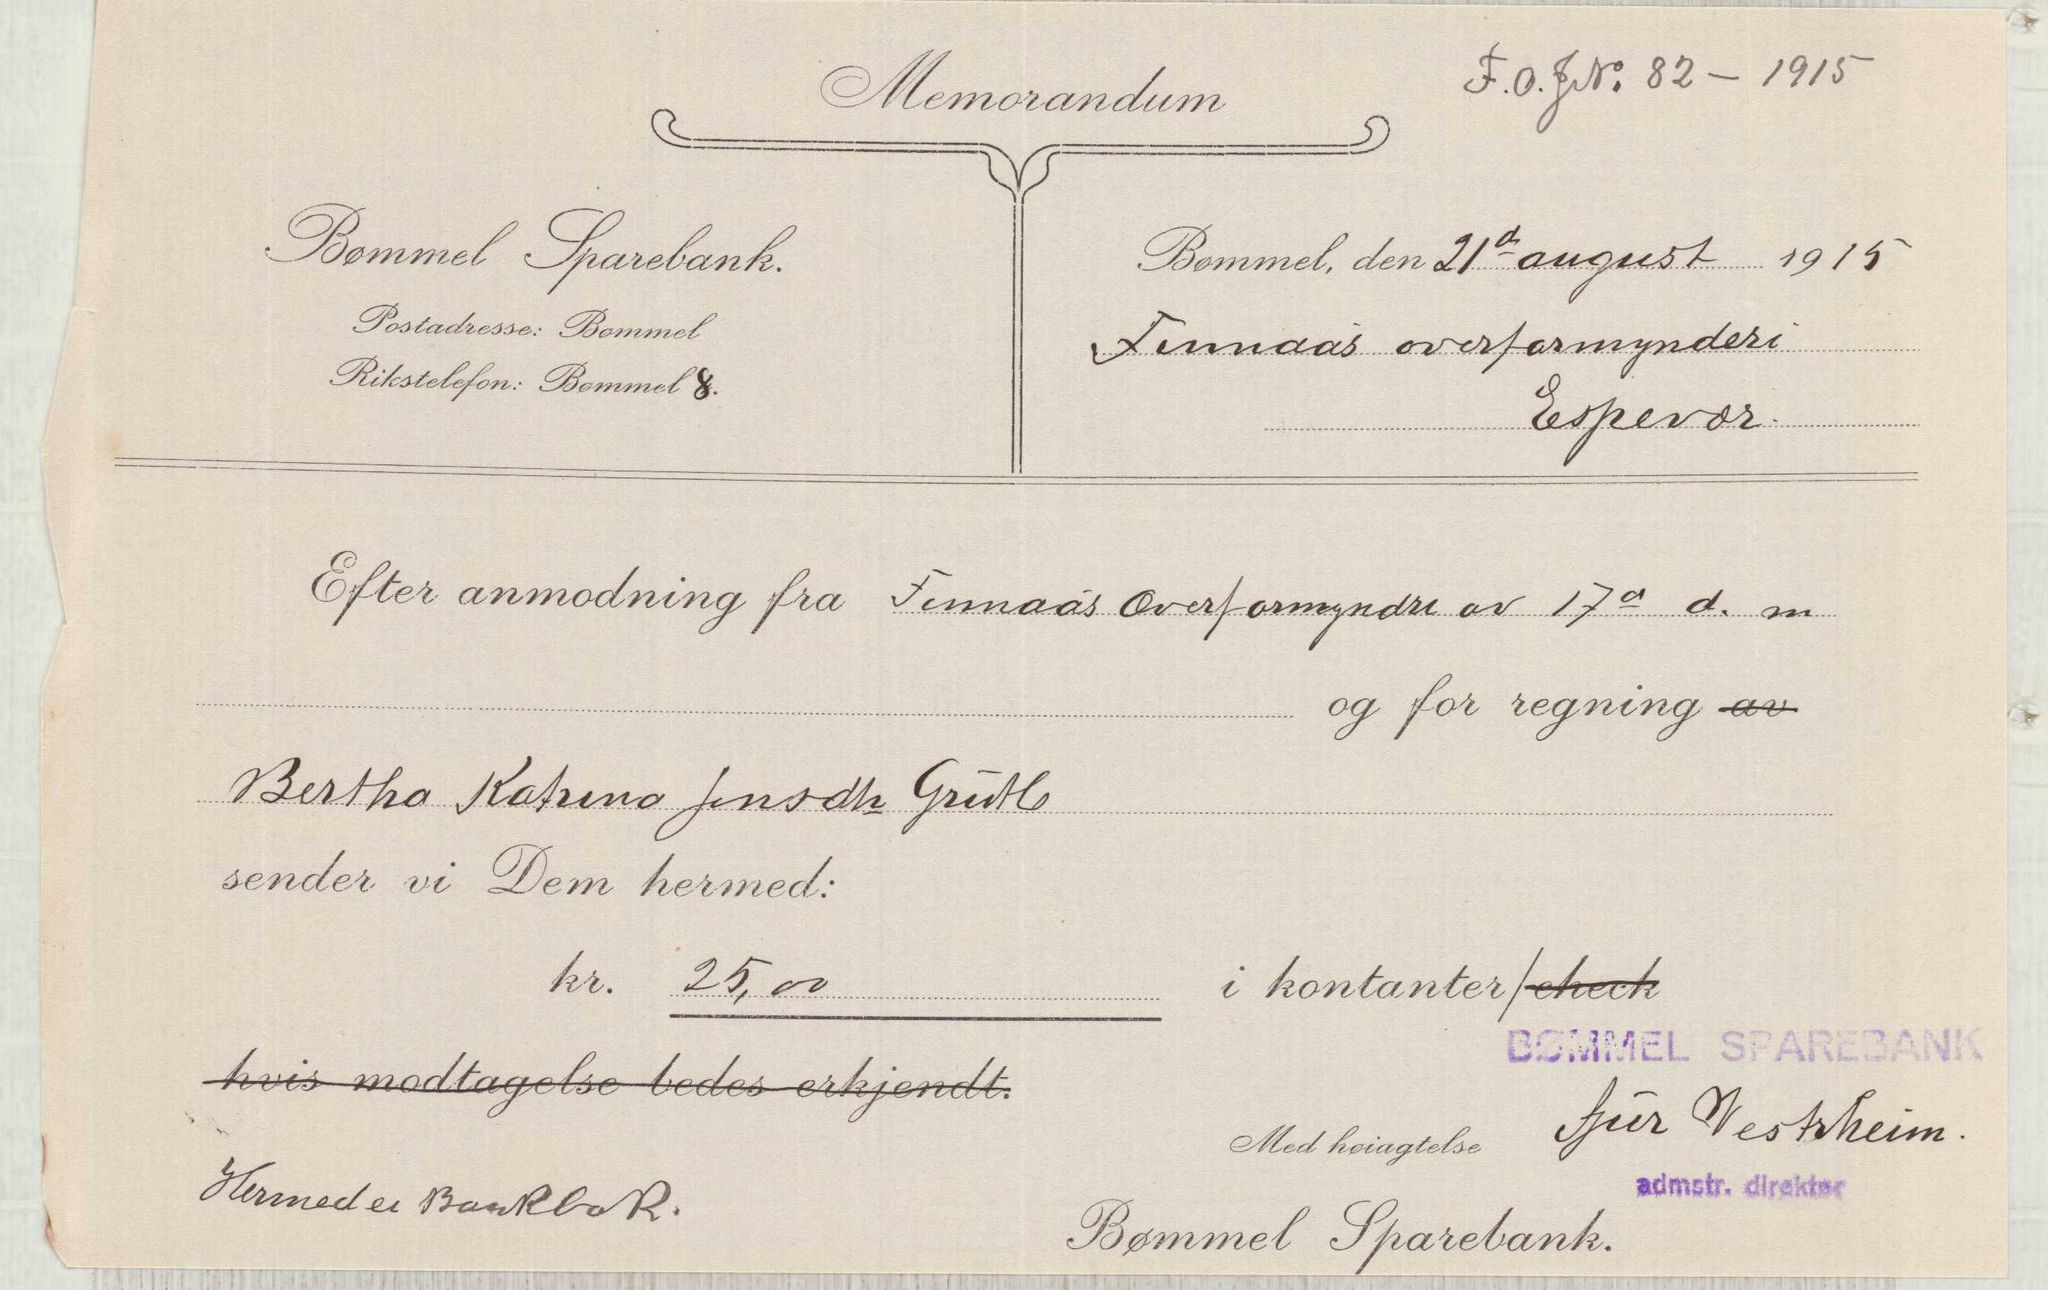 Memorandum
F.O.J.No. 82 – 1915
Bømmel Sparebank.
Postadresse: Bømmel
Rikstelefon: Bømmel 8.
Bømmel, den 21d august 1915
Finnaas overformynderi
Espevær.
Efter anmodning fra Finnaas Overformyndri av 17d d. m
og for regning av
Bertha Katrina Jensdtr
sender vi Dem hermed:
kr. 25,00 i kontanter/check
hvis modtagelse bedes erkjendt.
BØMMEL SPAREBANK
Med høiagtelse Sjur Vestrheim.
admstr. direktør
Hermed ei Bankbok.
Bømmel Sparebank.